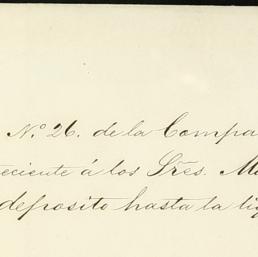 N.º 26. de la Compa
teciente á los Sres. M
deposito hasta la liq